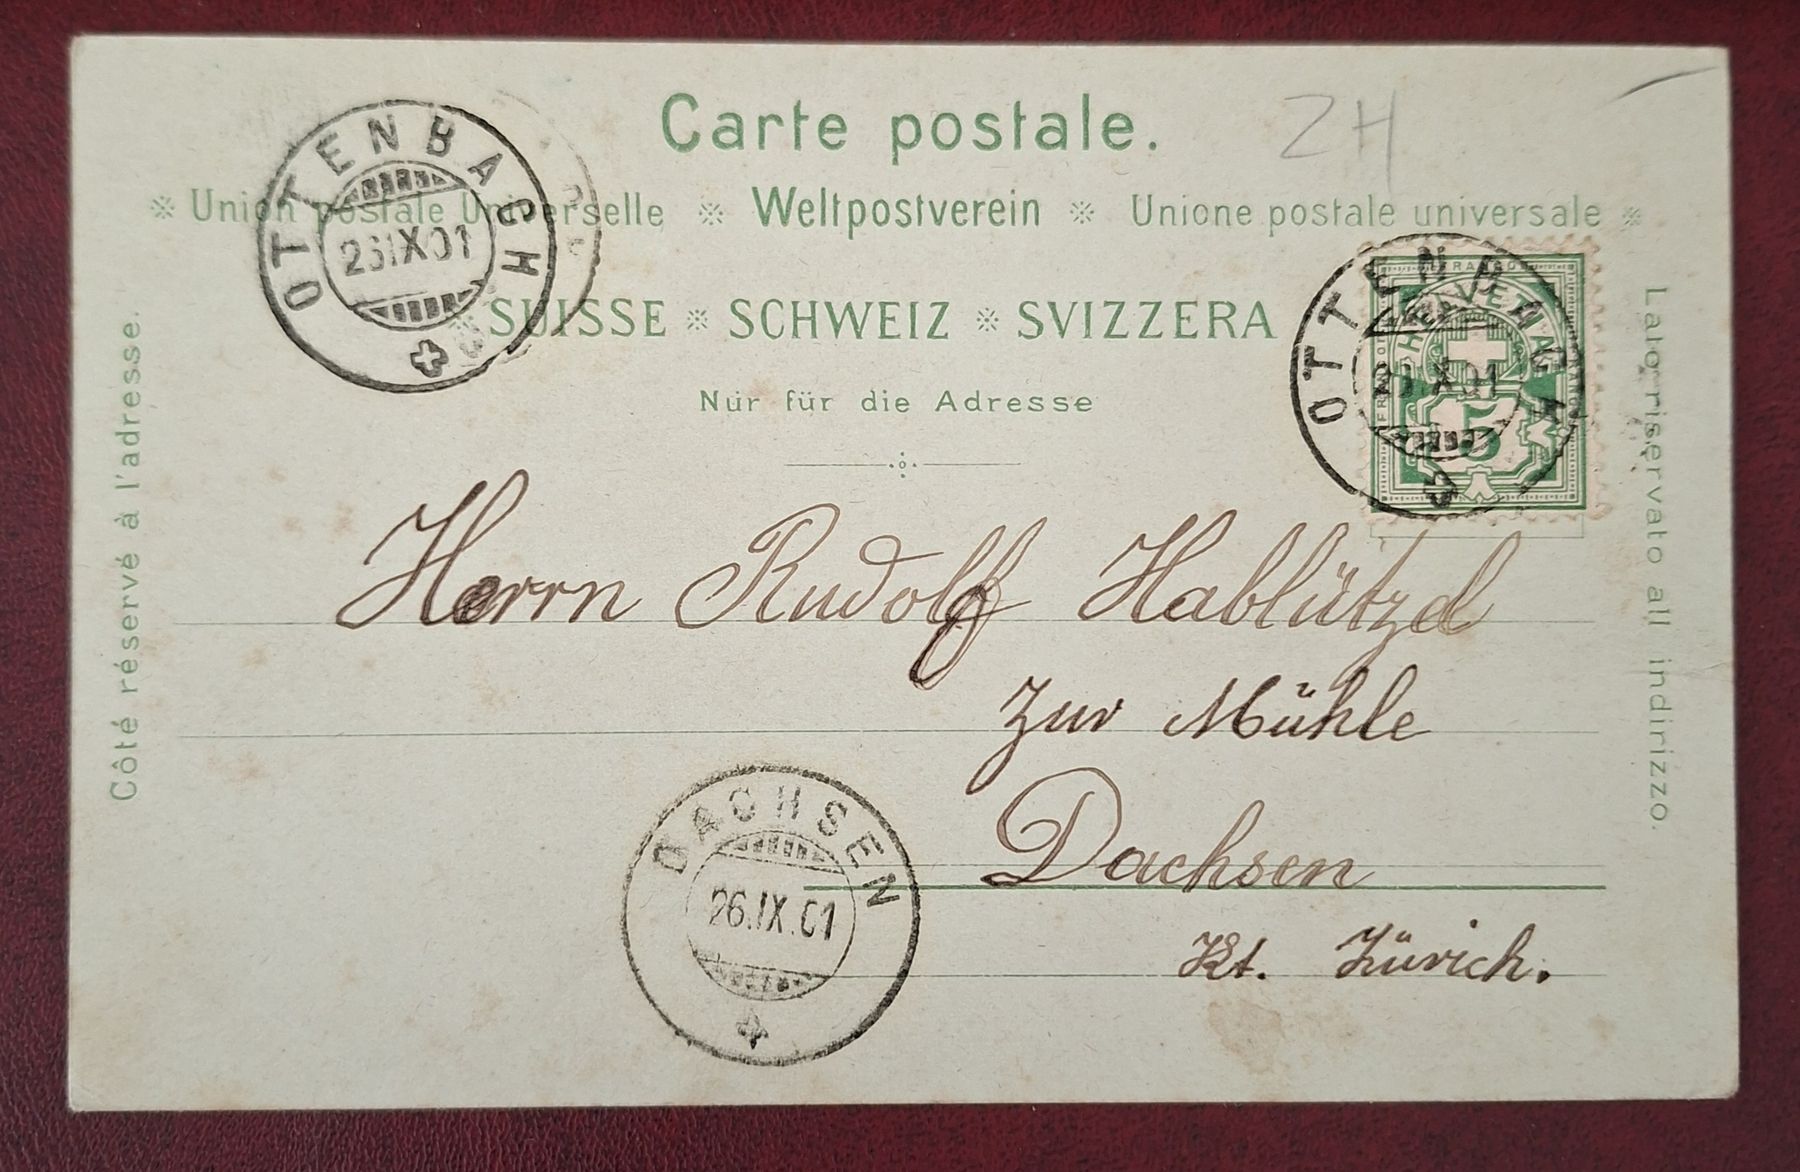 Carte postale.
ZH
Union postale Universelle Weltpostverein Unione postale universale
SUISSE SCHWEIZ SVIZZERA
Nur für die Adresse
Côté réservé à l'adresse.
Lato riservato all indirizzo.
OTTENBACH
IX 01
OTTENBACH
IX 01
FRANCO
HELVETIA
5
Herrn Rudolf Hablützel
zur Mühle
Dachsen
Kt. Zürich.
DACHSEN
26.IX.01